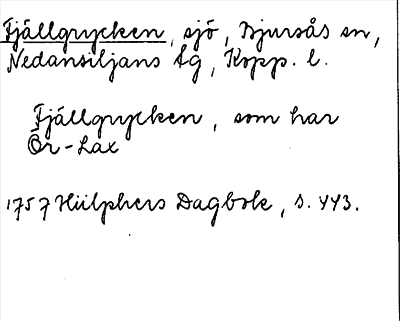 Fjällgrycken, sjö, Bjursås sn,
Nedansiljans tg, Kopp. l.
Fjällgrycken, som har
Ör-Lax
1757 Hülphers Dagbok, s. 443.